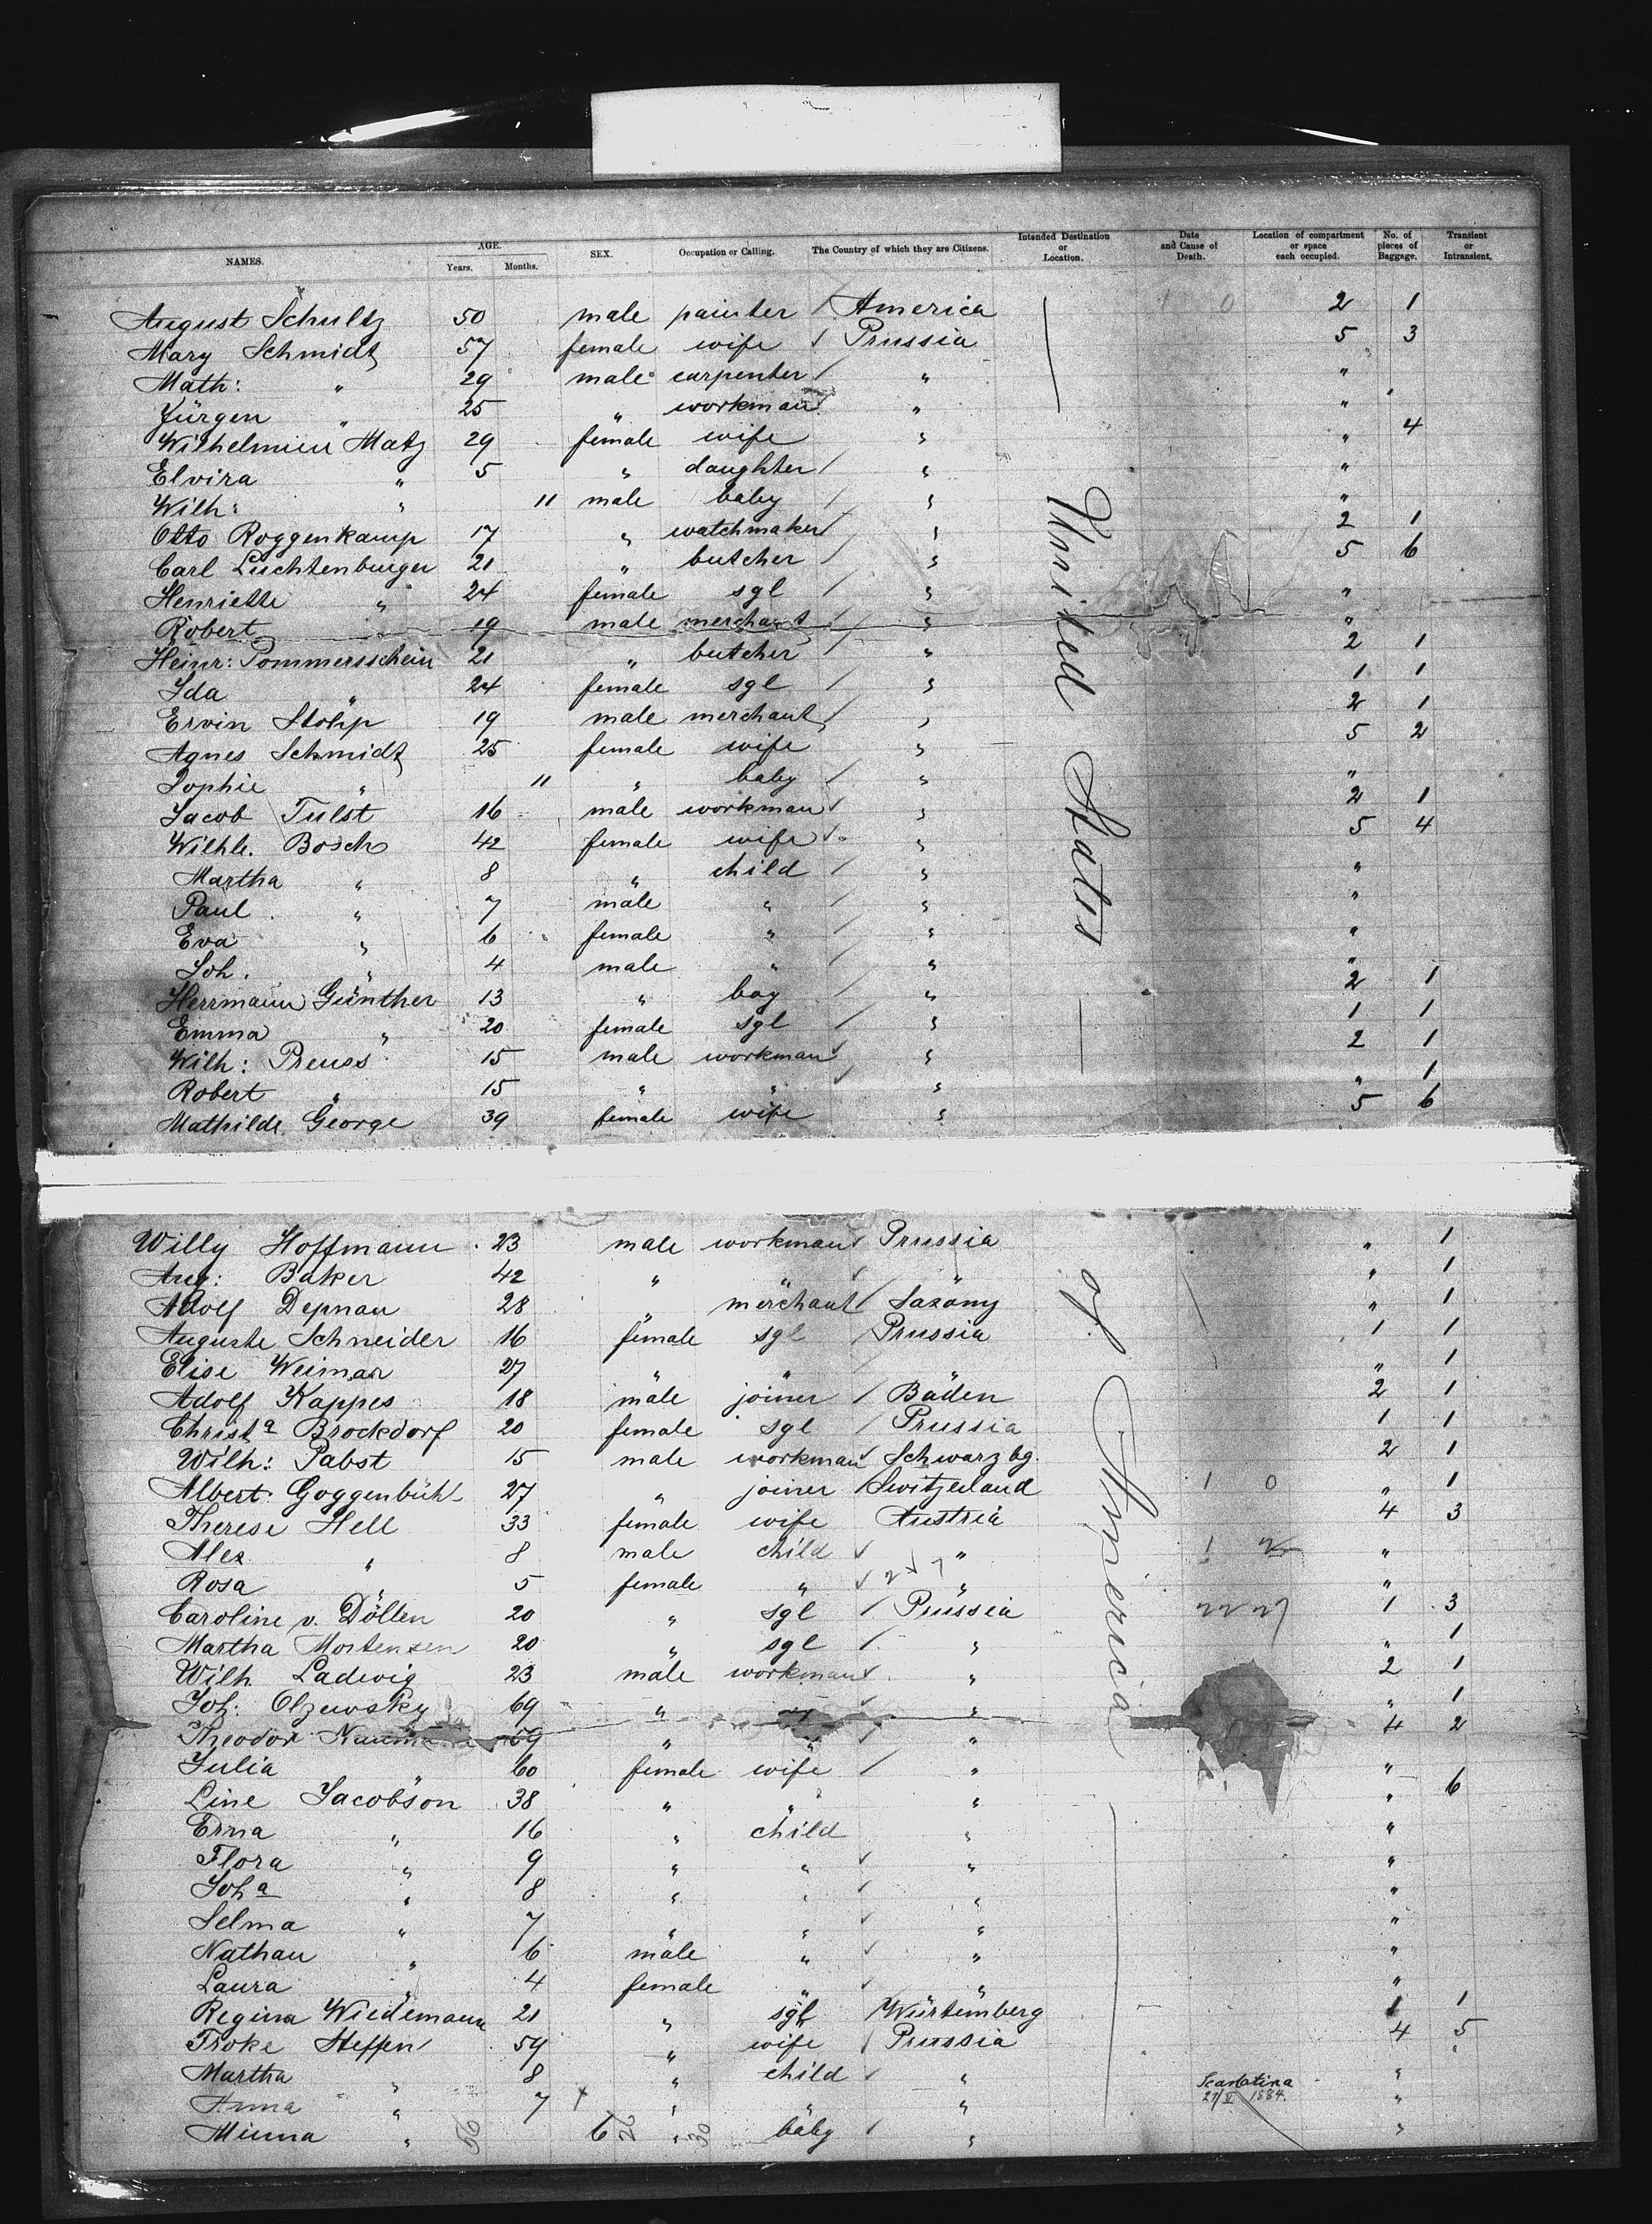 NAMES. AGE. Years. Months. SEX. Occupation or Calling. The Country of which they are Citizens. Intended Destination or Location. Date and Cause of Death. Location of compartment or space each occupied. No. of pieces of Baggage. Transient or Intransient.
August Schultz 50 male painter America 1 0 2 1
Mary Schmidt 57 female wife Prussia 5 3
Math: " 29 male carpenter " "
Jürgen " 25 " workman " "
Wilhelmine Matz 29 female wife " " 4
Elvira " 5 " daughter " "
Wilh: " 11 male baby " "
Otto Roggenkamp 17 " watchmaker " 2 1
Carl Luchtenburger 21 " butcher " 5 6
Henriette " 24 female sgl " "
Robert 19 male merchant " "
Heinr: Pommersschein 21 " butcher " 2 1
Ida " 24 female sgl " 1 1
Ervin Stohp 19 male merchant " 2 1
Agnes Schmidt 25 female wife " 5 2
Sophie " 11 " baby " "
Jacob Tulst 16 male workman " 2 1
Wilhle. Bosch 42 female wife " 5 4
Martha " 8 " child " "
Paul " 7 male " " "
Eva " 6 female " " "
Joh. " 4 male " " "
Herrmann Günther 13 " boy " 2 1
Emma " 20 female sgl " 1 1
Wilh: Preuss 15 male workman " 2 1
Robert " 15 " " " " 1
Mathilde George 39 female wife " 5 6
United States
Willy Hoffmann 23 male workman Prussia " 1
Aug: Baker 42 " " " " 1
Adolf Depnau 28 " merchant Saxony " 1
Auguste Schneider 16 female sgl Prussia 1 1
Elise Weimar 27 " " " " 1
Adolf Kappes 18 male joiner Baden 2 1
Christa Brockdorf 20 female sgl Prussia 1 1
Wilh: Pabst 15 male workman Schwarzbg. 2 1
Albert Goggenbühl 27 " joiner Switzerland 1 0 " 1
Therese Hell 33 female wife Austria 4 3
Alex " 8 male child " "
Rosa " 5 female " " "
Caroline v. Döllen 20 " sgl Prussia 1 3
Martha Mortensen 20 " sgl " " 1
Wilh. Ladewig 23 male workman " 2 1
Joh: Olzewsky 69 " " " " 1
Theodor 59 " " " 4 2
Julia 60 female wife " "
Line Jacobson 38 " " " " 6
Erna " 16 " child " "
Flora " 9 " " " "
Joha " 8 " " " "
Selma " 7 " " " "
Nathan " 6 male " " "
Laura " 4 female " " "
Regina Wiedemann 21 " sgl Würtemberg 1 1
Froke Steffen 54 " wife Prussia 4 5
Martha " 8 " child " "
Anna " 7 " " " Scarlatina 27/V 1884. "
Minna " 6 " baby " "
of America